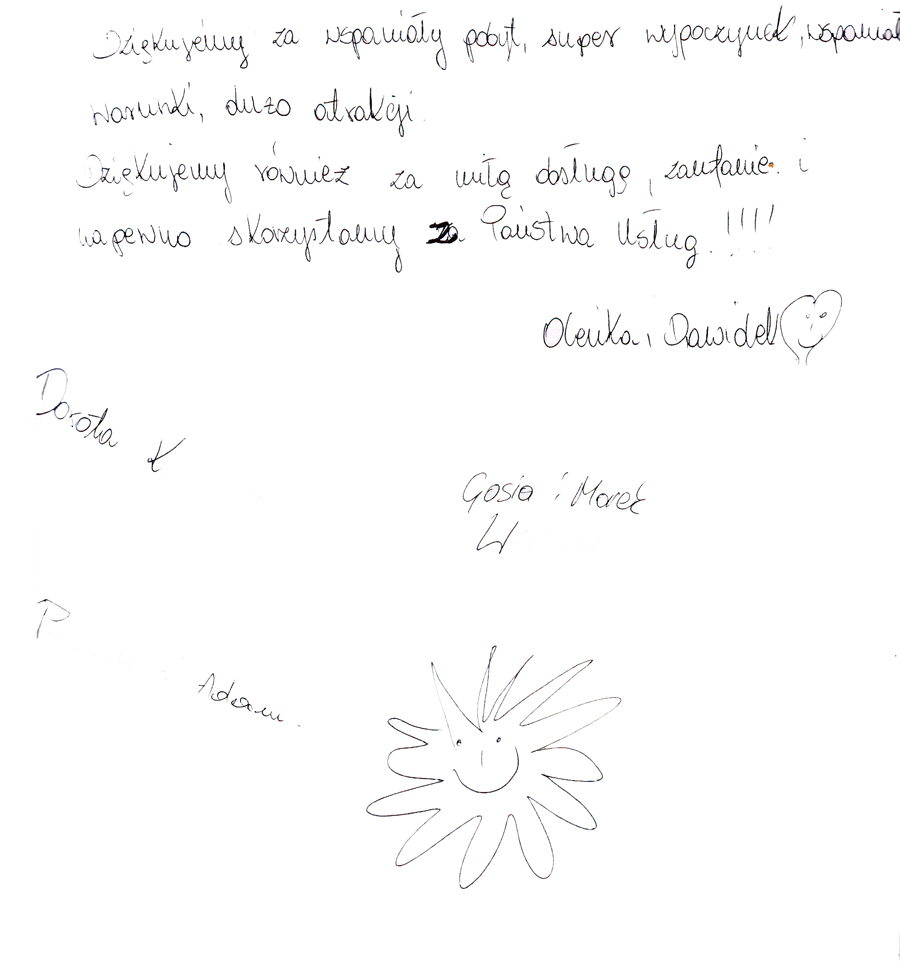 Dziękujemy za wspaniały pobyt, super wypoczynek, wspaniał
warunki, dużo atrakcji.
Dziękujemy również za miłą obsługę, zaufanie i
napewno skorzystamy za Państwa Usług!!!!!
Oleńka i Dawidek
Dorota K
Gosia i Marek
W
P
Adam.